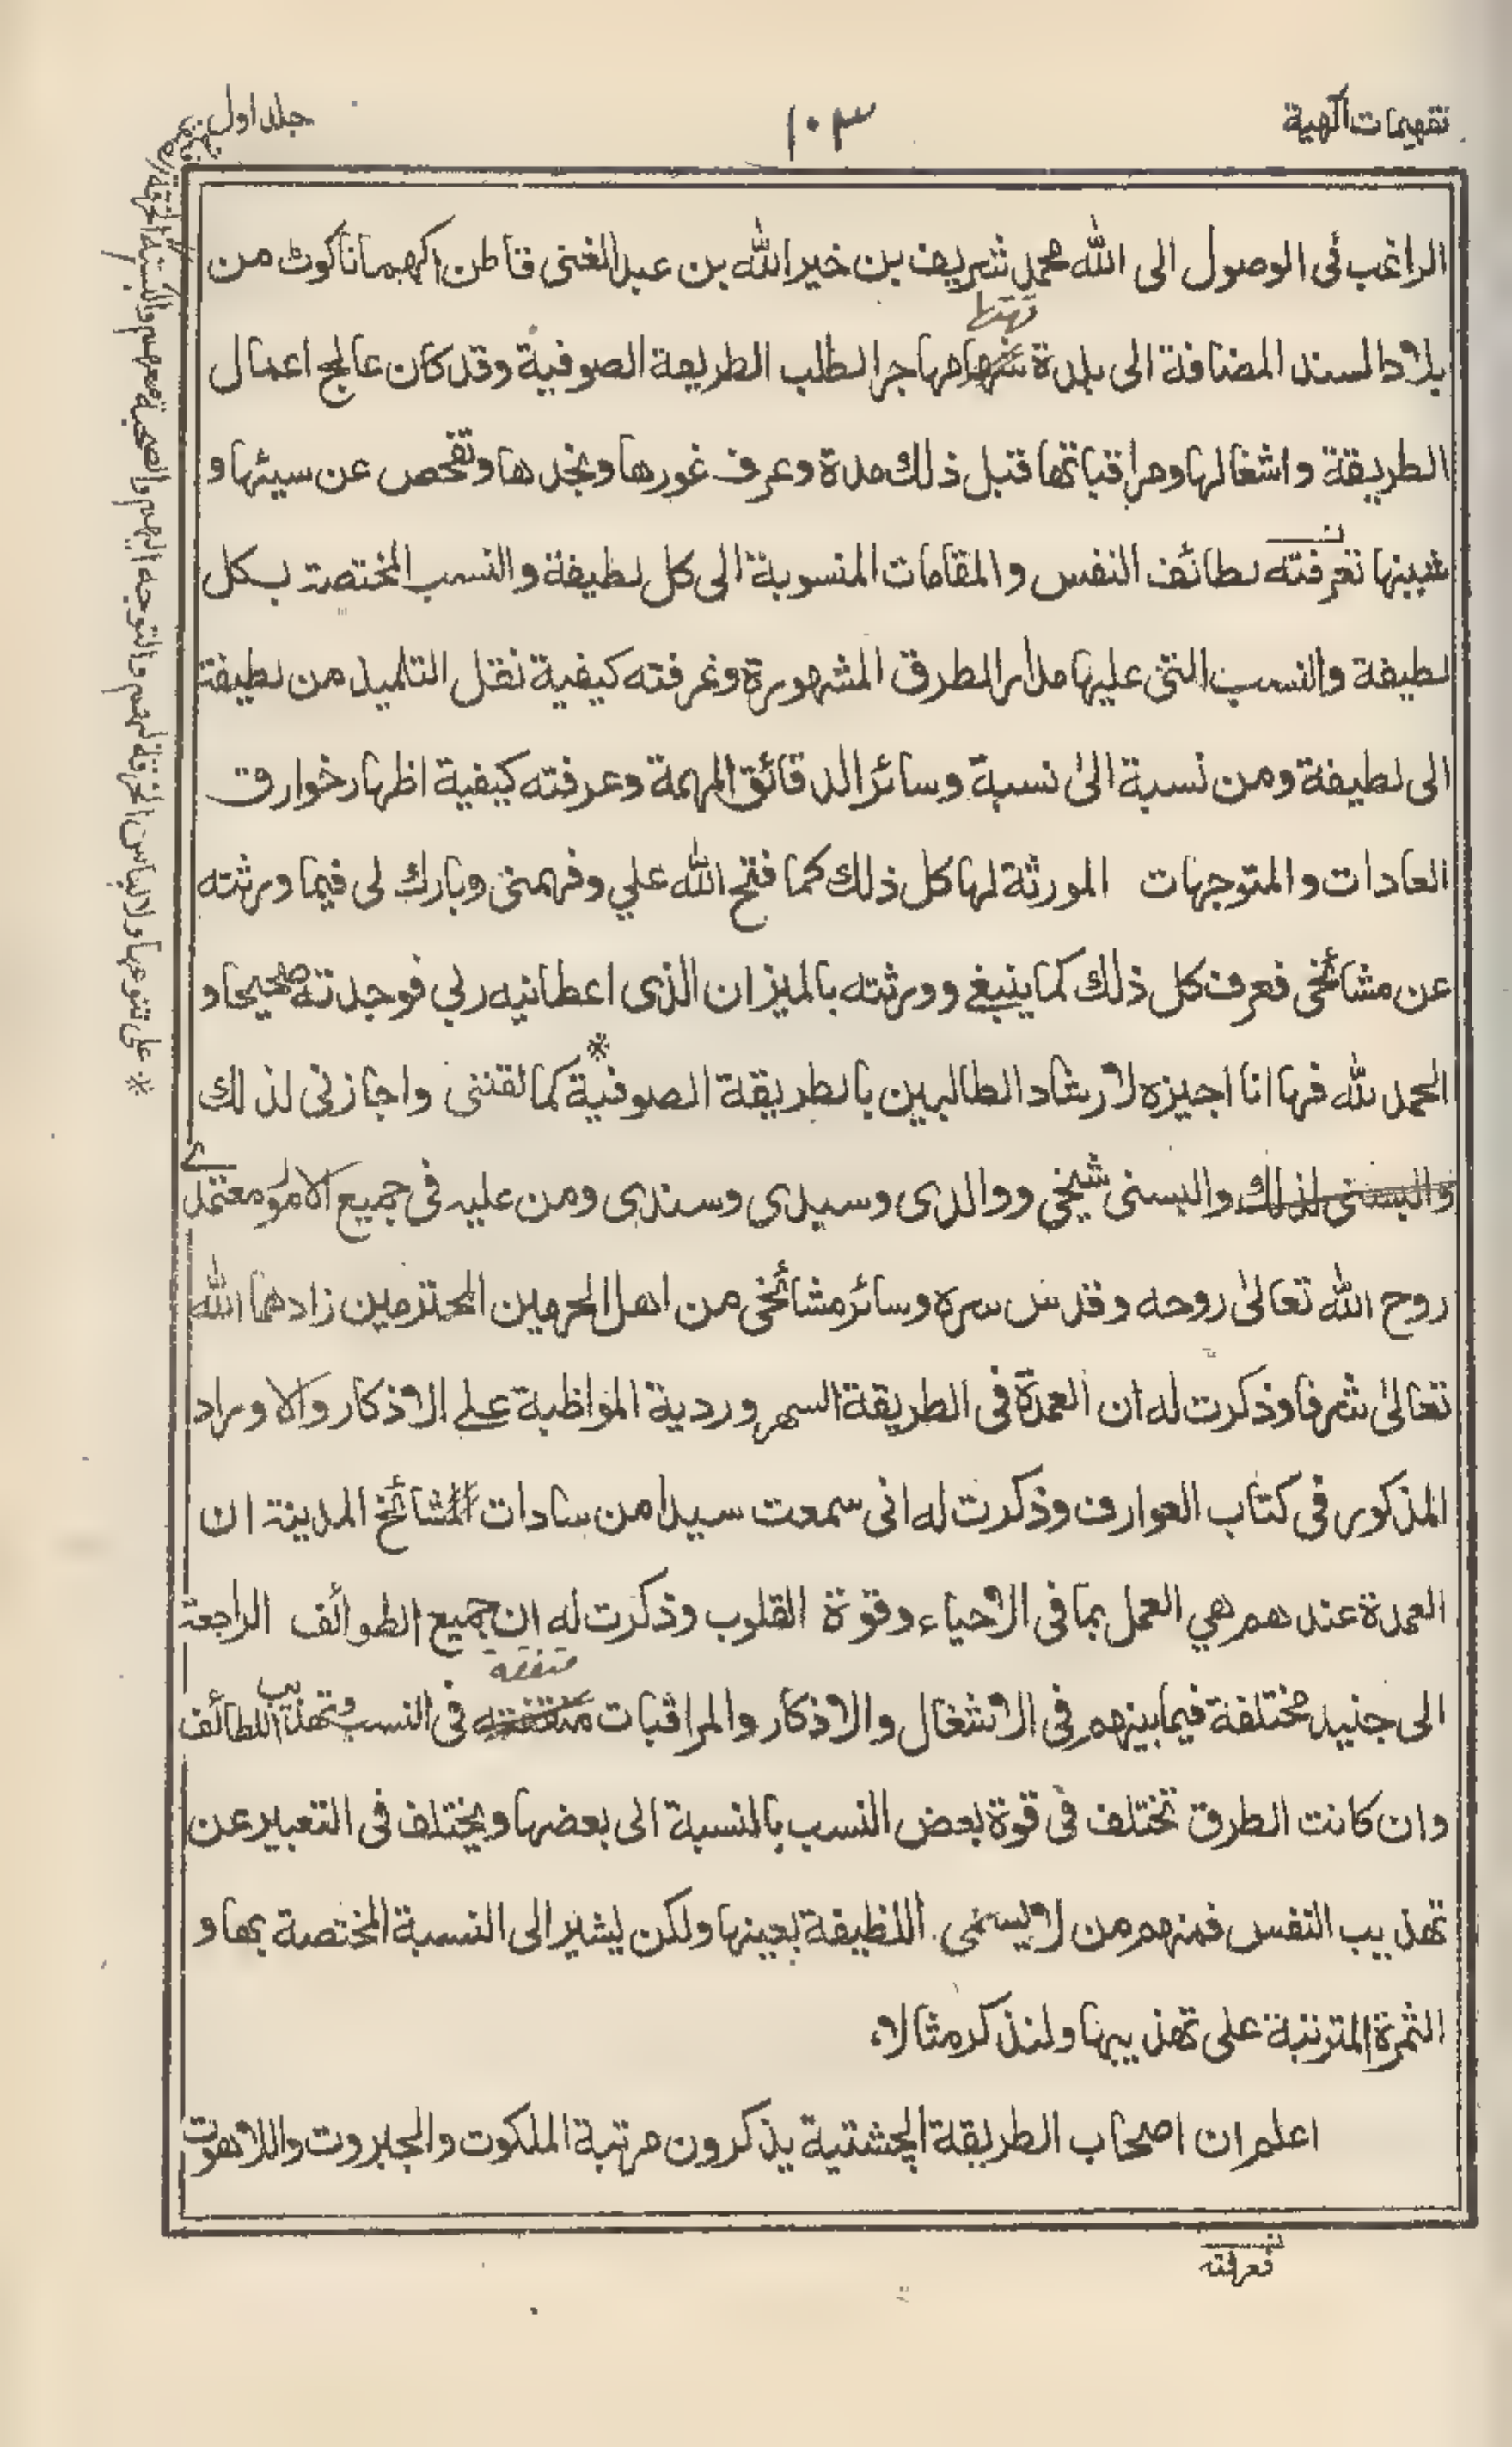 تفهيمات الٰهية
١٠٣
جلد اول
الراغب فى الوصول الى الله محمد شريف بن خير الله بن عبد الغنى قاطن اكهمانا كوٹ من
تهتها
بلاد السند المضافة الى بلدة مهاجرا لطلب الطريعة الصوفية وقد كان عالج اعمال
الطريقة واشغالها ومراقباتها قبل ذلك مدة وعرف غورها ونجدها وتفحص عن سيئها و
شيينها نعرفته لطائف النفس والمقامات المنسوبة الى كل لطيفة والنسب المختصة بكل
لطيفة والنسب التى عليها مدار الطرق المشهورة وعرفته كيفية نقل التلميذ من لطيفة
الى لطيفة ومن نسبة الىٰ نسبة وسائر الدقائق المهمة وعرفته كيفية اظهار خوارق
العادات والمتوجهات المورثة لها كل ذلك كما فتح الله علي وفهمنى وبارك لى فيما ورثته
عن مشائخى فعرف كل ذلك كما ينبغے وورثته بالميزان الذى اعطانيه ربي فوجدته صحيحا و
الحمد لله فها انا اجيزه لارشاد الطالبين بالطريقة الصوفية * كما لقننى واجازنى لذلك
والبسنى لذلك والبسنى شيخي ووالدى وسيدى وسندى ومن عليه فى جميع الامور معتمدے
روح الله تعالىٰ روحه وقدس سره وسائر مشائخى من اهل الحرمين المحترمين زادهما الله
تعالىٰ شرفا وذكرت له ان العمدة فى الطريقة السهروردية المواظبة علے الاذكار والاوراد
المذكور فى كتاب العوارف وذكرت له انى سمعت سيدا من سادات المشائخ المدينة ان
العمدة عندهم هي العمل بما فى الاحياء وقوة القلوب وذكرت له ان جميع الطوائف الراجعة
متفقة
الى جنيد مختلفة فيما بينهم فى الاشغال والاذكار والمراقبات فى النسب وتهذيب اللطائف
وان كانت الطرق تختلف فى قوة بعض النسب بالنسبة الى بعضها ويختلف فى التعبير عن
تهذيب النفس فمنهم من لا يسمى اللطيفة بعينها ولكن يشير الى النسبة المختصة بها و
الثمرة المترتبة على تهذيبها ولنذكر مثالاً
اعلم ان اصحاب الطريقة الچشتية يذكرون مرتبة الملكوت والجبروت واللاهوت
فعرفته
والصحبة معهم والتوجه اليهم ولالباس الخرقة على تنوعها *